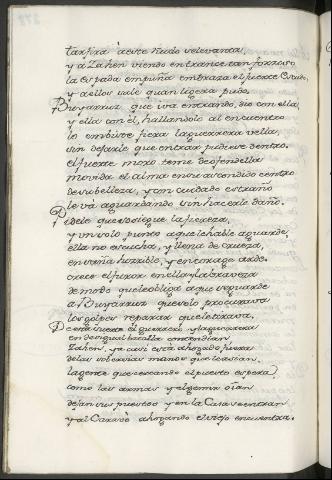 tarfira aceste ñudo velevanar,
y á Zahen viendo en trance tan forzoso
la espada empuña embraza el fuerte Escudo,
y a ellos sale quan ligero pudo.
Buyarruz que iva entrando, dio con ella
y ella con él, hallandolo al encuentro
le embiste fiera la guerrera vella,
sin dejarle que entrar pudiese dentro.
el fuerte moro teme de ofendella
movida el alma en su ascondido centro
de su belleza, y con cuidado estraño
le vá aguardando sin hacerle daño.
Pidele que sosiegue la fiereza,
y un solo punto aquel chable aguarde,
ella no escucha, y llena de crueza,
en saña horrible, y en corage arde.
crece el furor en ella y la braveza
de modo que le obliga a que se guarde
a Buyarruz que solo procurava
los golpes reparar que le tirava.
De esta suerte el guerrero y la guerrera
en desigual batalla contendian
Zahen, que casi está ahogado fuera
de las sobervias manos que
la gente que cercando el puesto espera
como las armas y el gemir oían
dejan sus puestos y en la Casa entran
y al Caravó ahogando el viejo encuentra.